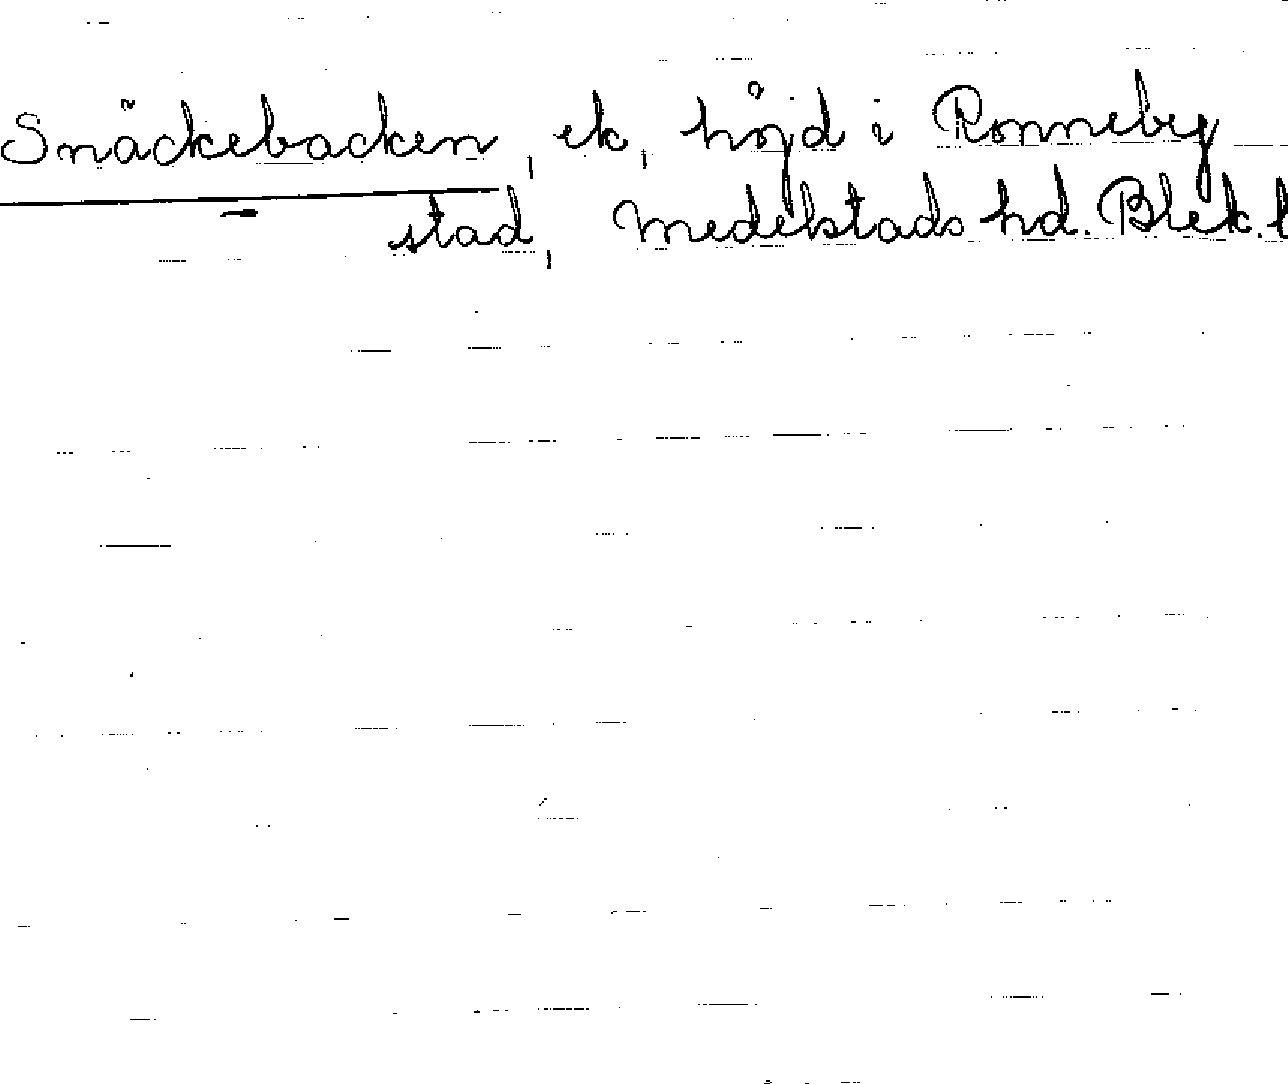 Snäckebacken, ek, höjd i Ronneby
stad, Medelstads hd. Blek. l